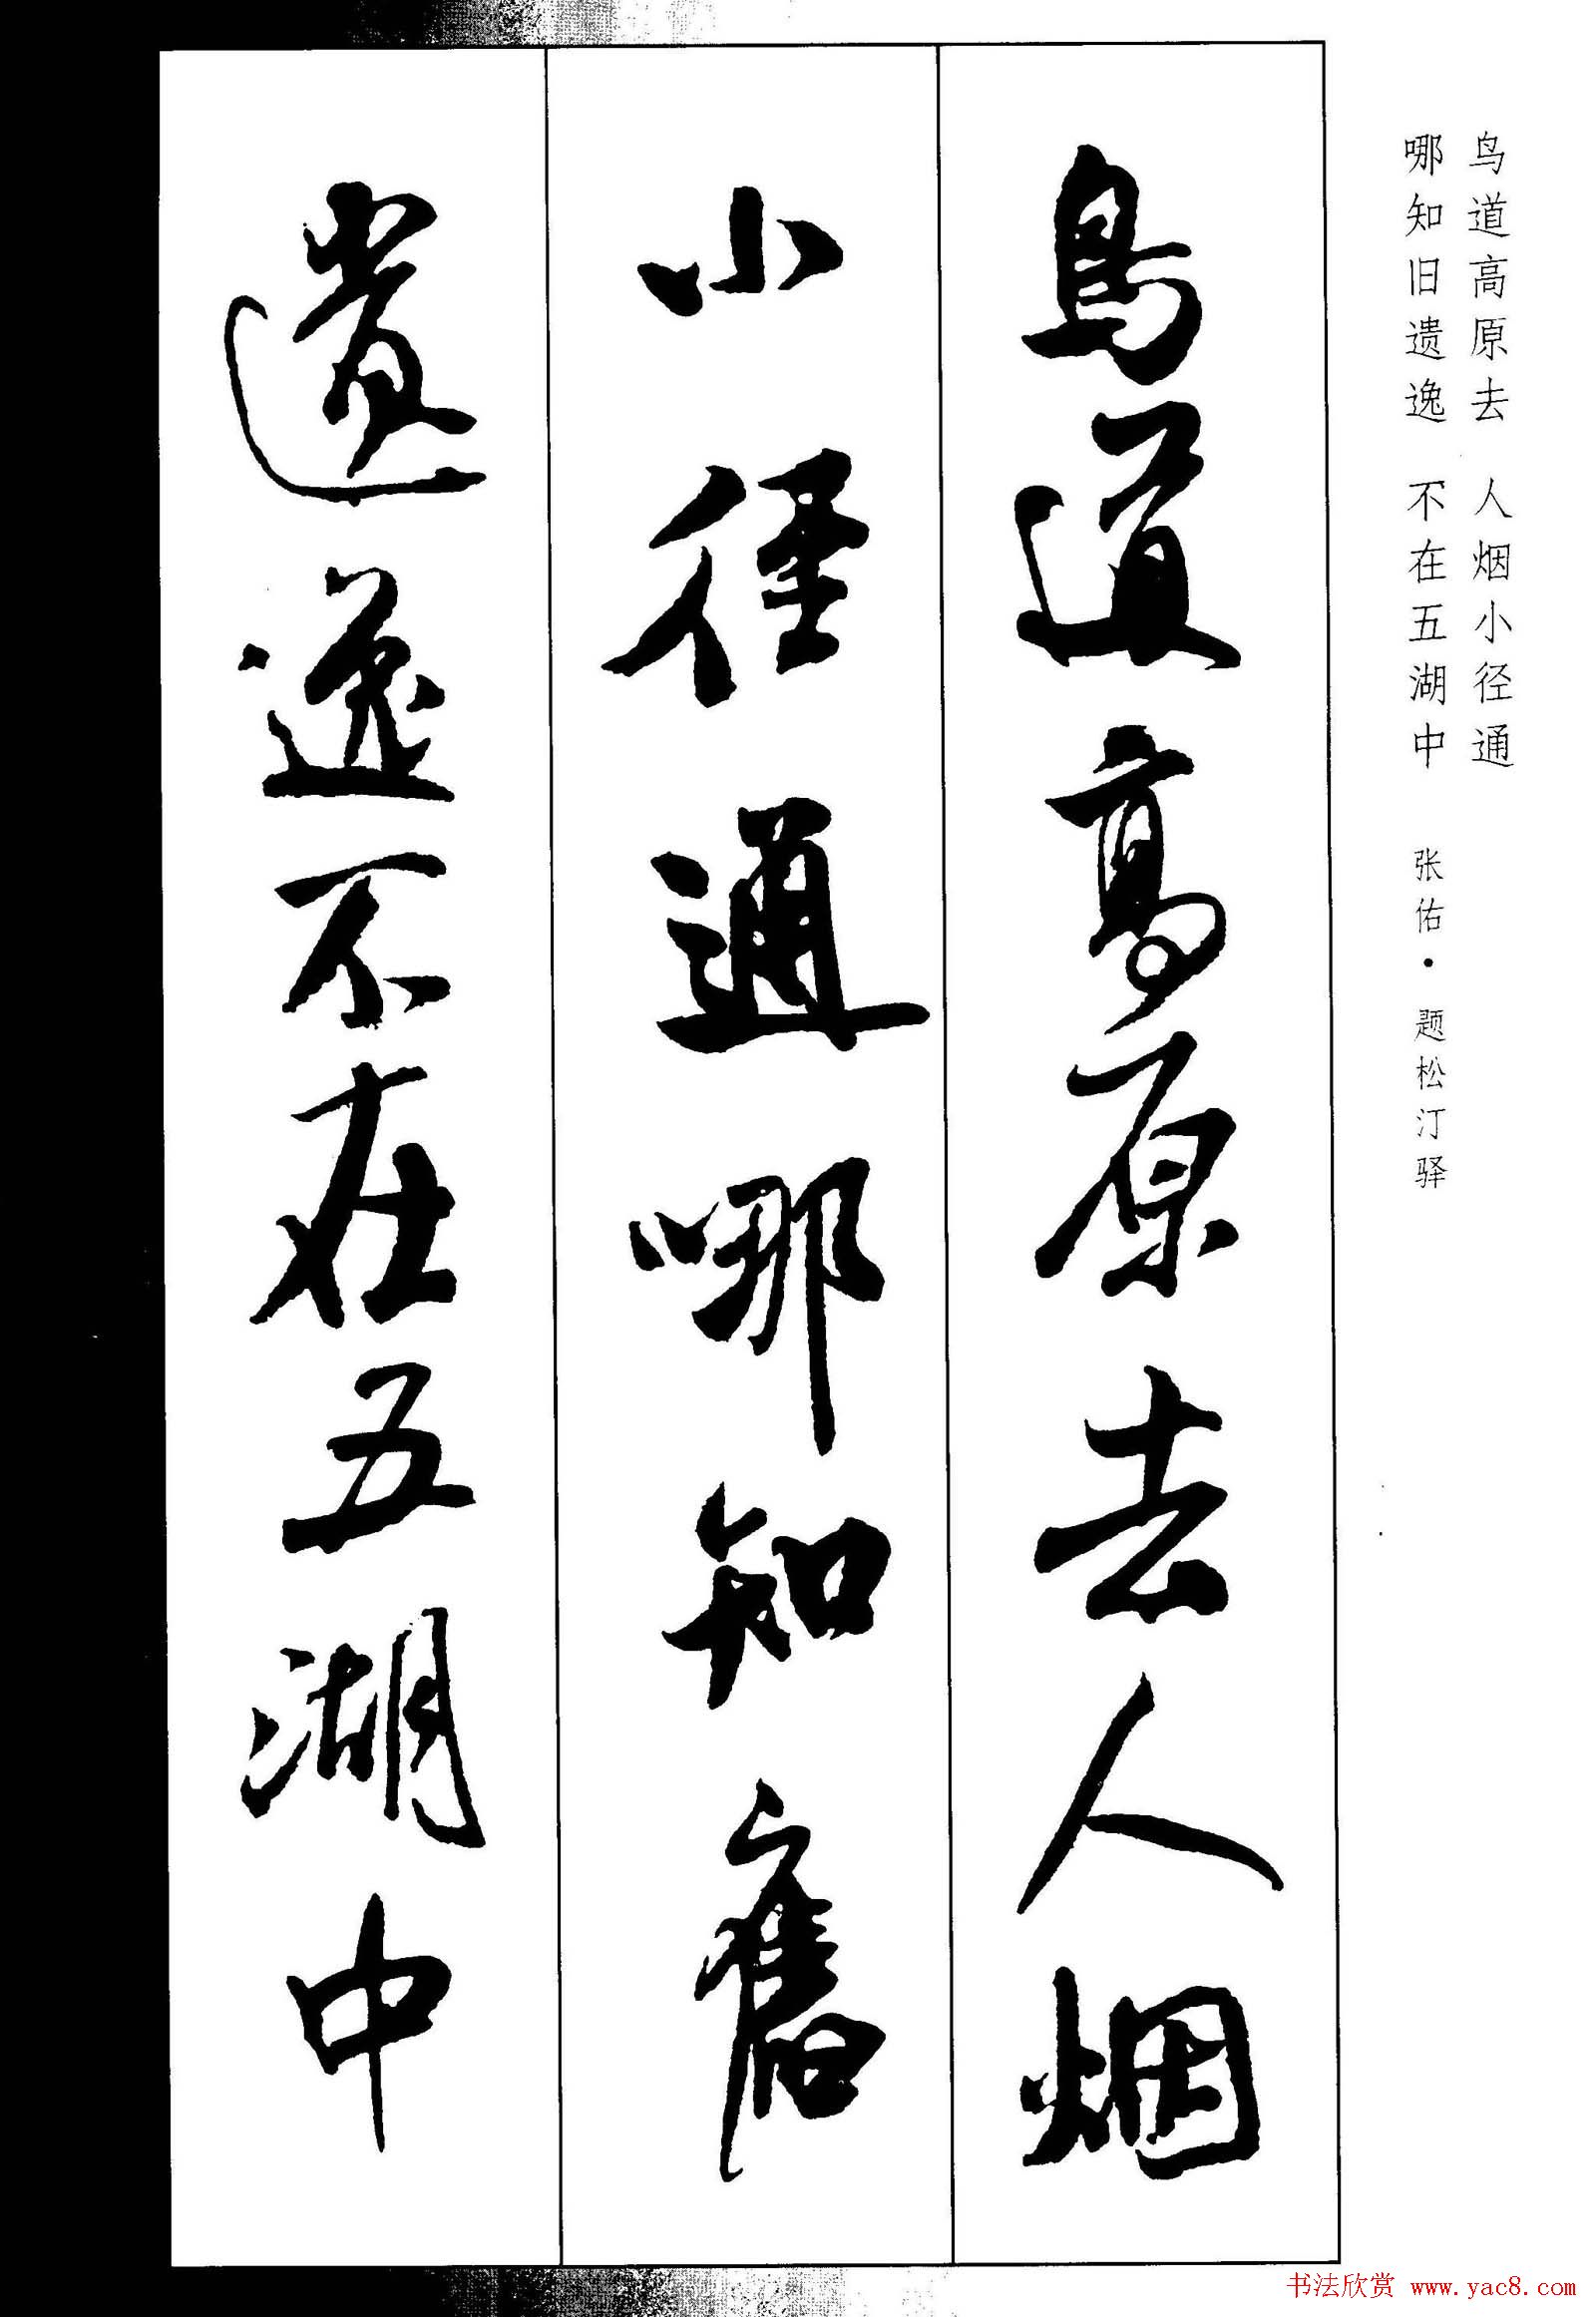 鸟道高原去 人烟小径通
哪知旧遗逸 不在五湖中
张佑·题松汀驿
鳥道高原去人烟
小径通哪知舊
遗逸不在五湖中
书法欣赏 www.yac8.com